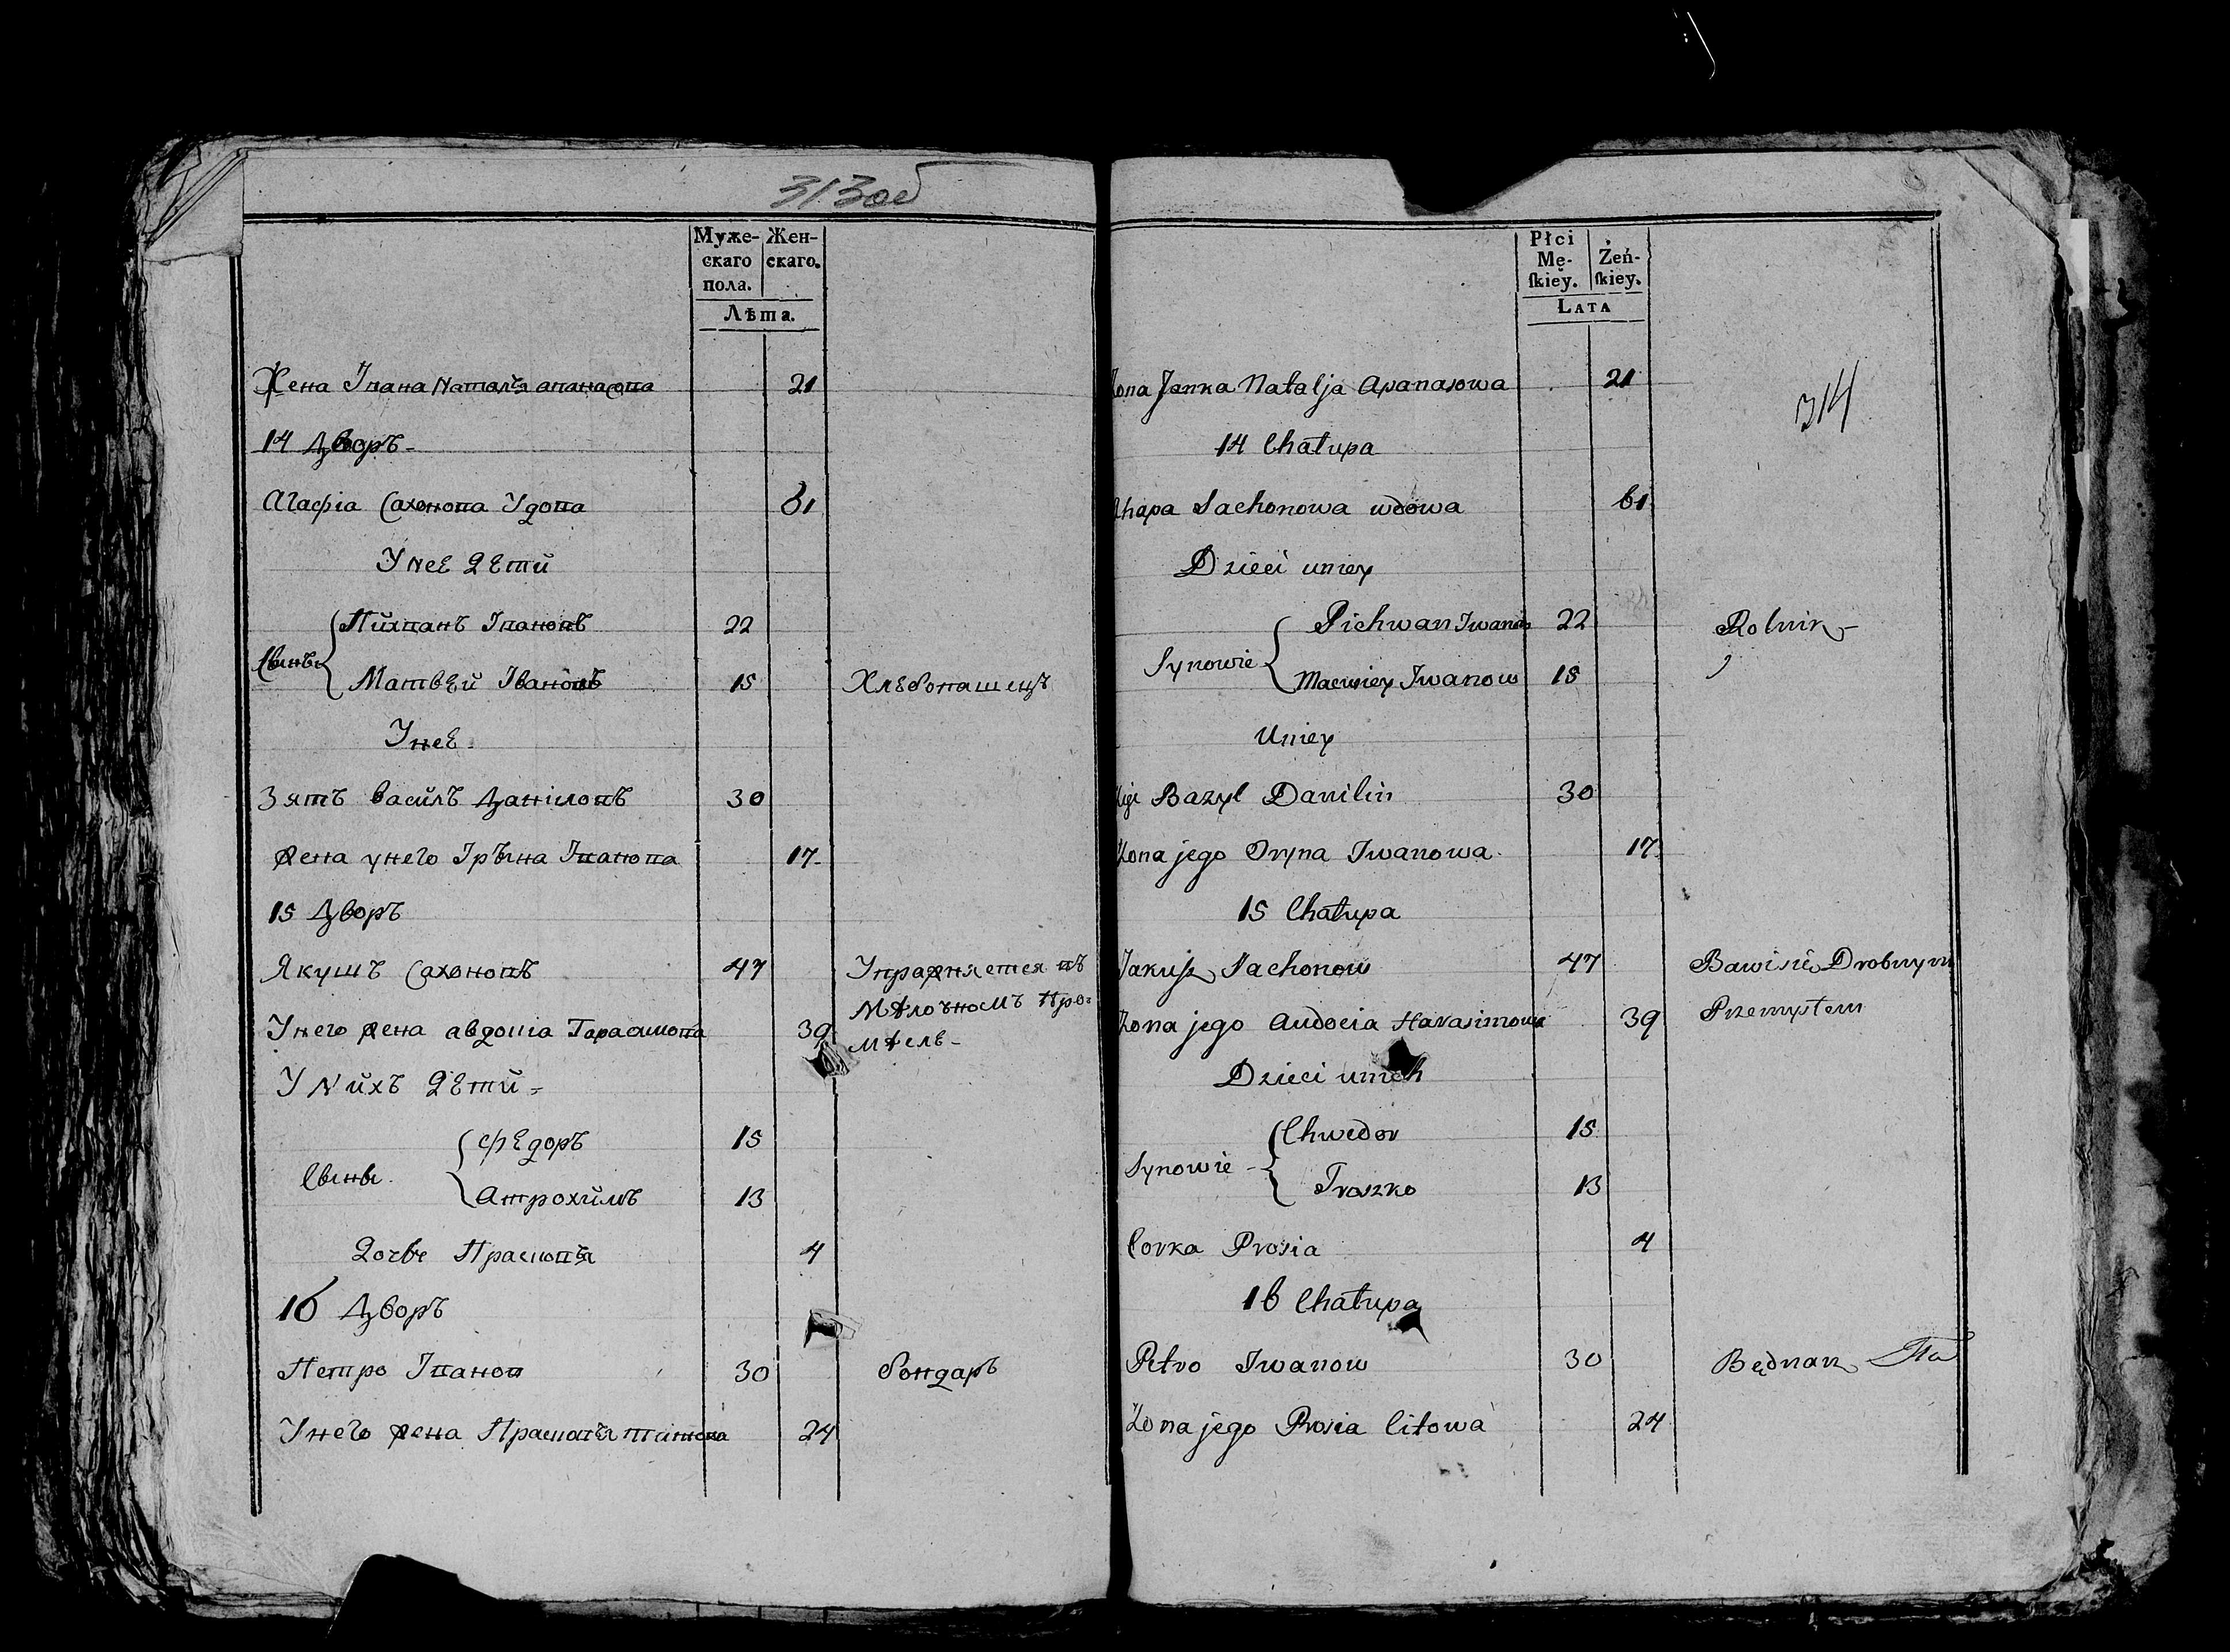 313об
Муже-
скаго
пола.
Жен-
скаго.
Лѣта.
Жена Iвана Наталѣя апанасова 21
14 Дворъ
Агафіа Сахонова Удова 61
У нее Дети
Сынѣ
Пихванъ Iвановъ 22
Матвей Iвановъ 15 Хлебопашецъ
У нее
Зятъ василъ Данiловъ 30
жена у него Iръина Iванова 17
15 Дворъ
Якушъ Сахоновъ 47 Упражняется въ
мѣлочномъ про=
мѣслѣ
У него жена авдотiа Гарасимова 39
У Нихъ Дети
Сыны
Федоръ 15
Атрохимъ 13
Дочь Прасковѣя 4
16 Дворъ
Петро Iванов 30 бондаръ
У него жена Прасковѣя титова 24
Płci
Mę-
skiey.
Żeń-
skiey.
Lata
314
Żona Janka Natalja Apanasowa 21
14 Chałupa
Ahapa Sachonowa wdowa 61
Dzieci uniey
Synowie
Pichwan Iwanow 22 Rolnik
Maciwiey Iwanow 15
Uniey
Bazyl Danilin 30
Żona jego Oryna Iwanowa 17
15 Chałupa
Jakusz Sachonow 47 Bawi się Drobnym
Przemysłem
Żona jego Audocia Harasimowa 39
Dzieci unich
Synowie
Chwedor 15
Troszko 13
Corka Prosia 4
16 Chałupa
Petro Iwanow 30 Będnarz
Żona jego Prosia Citowa 24